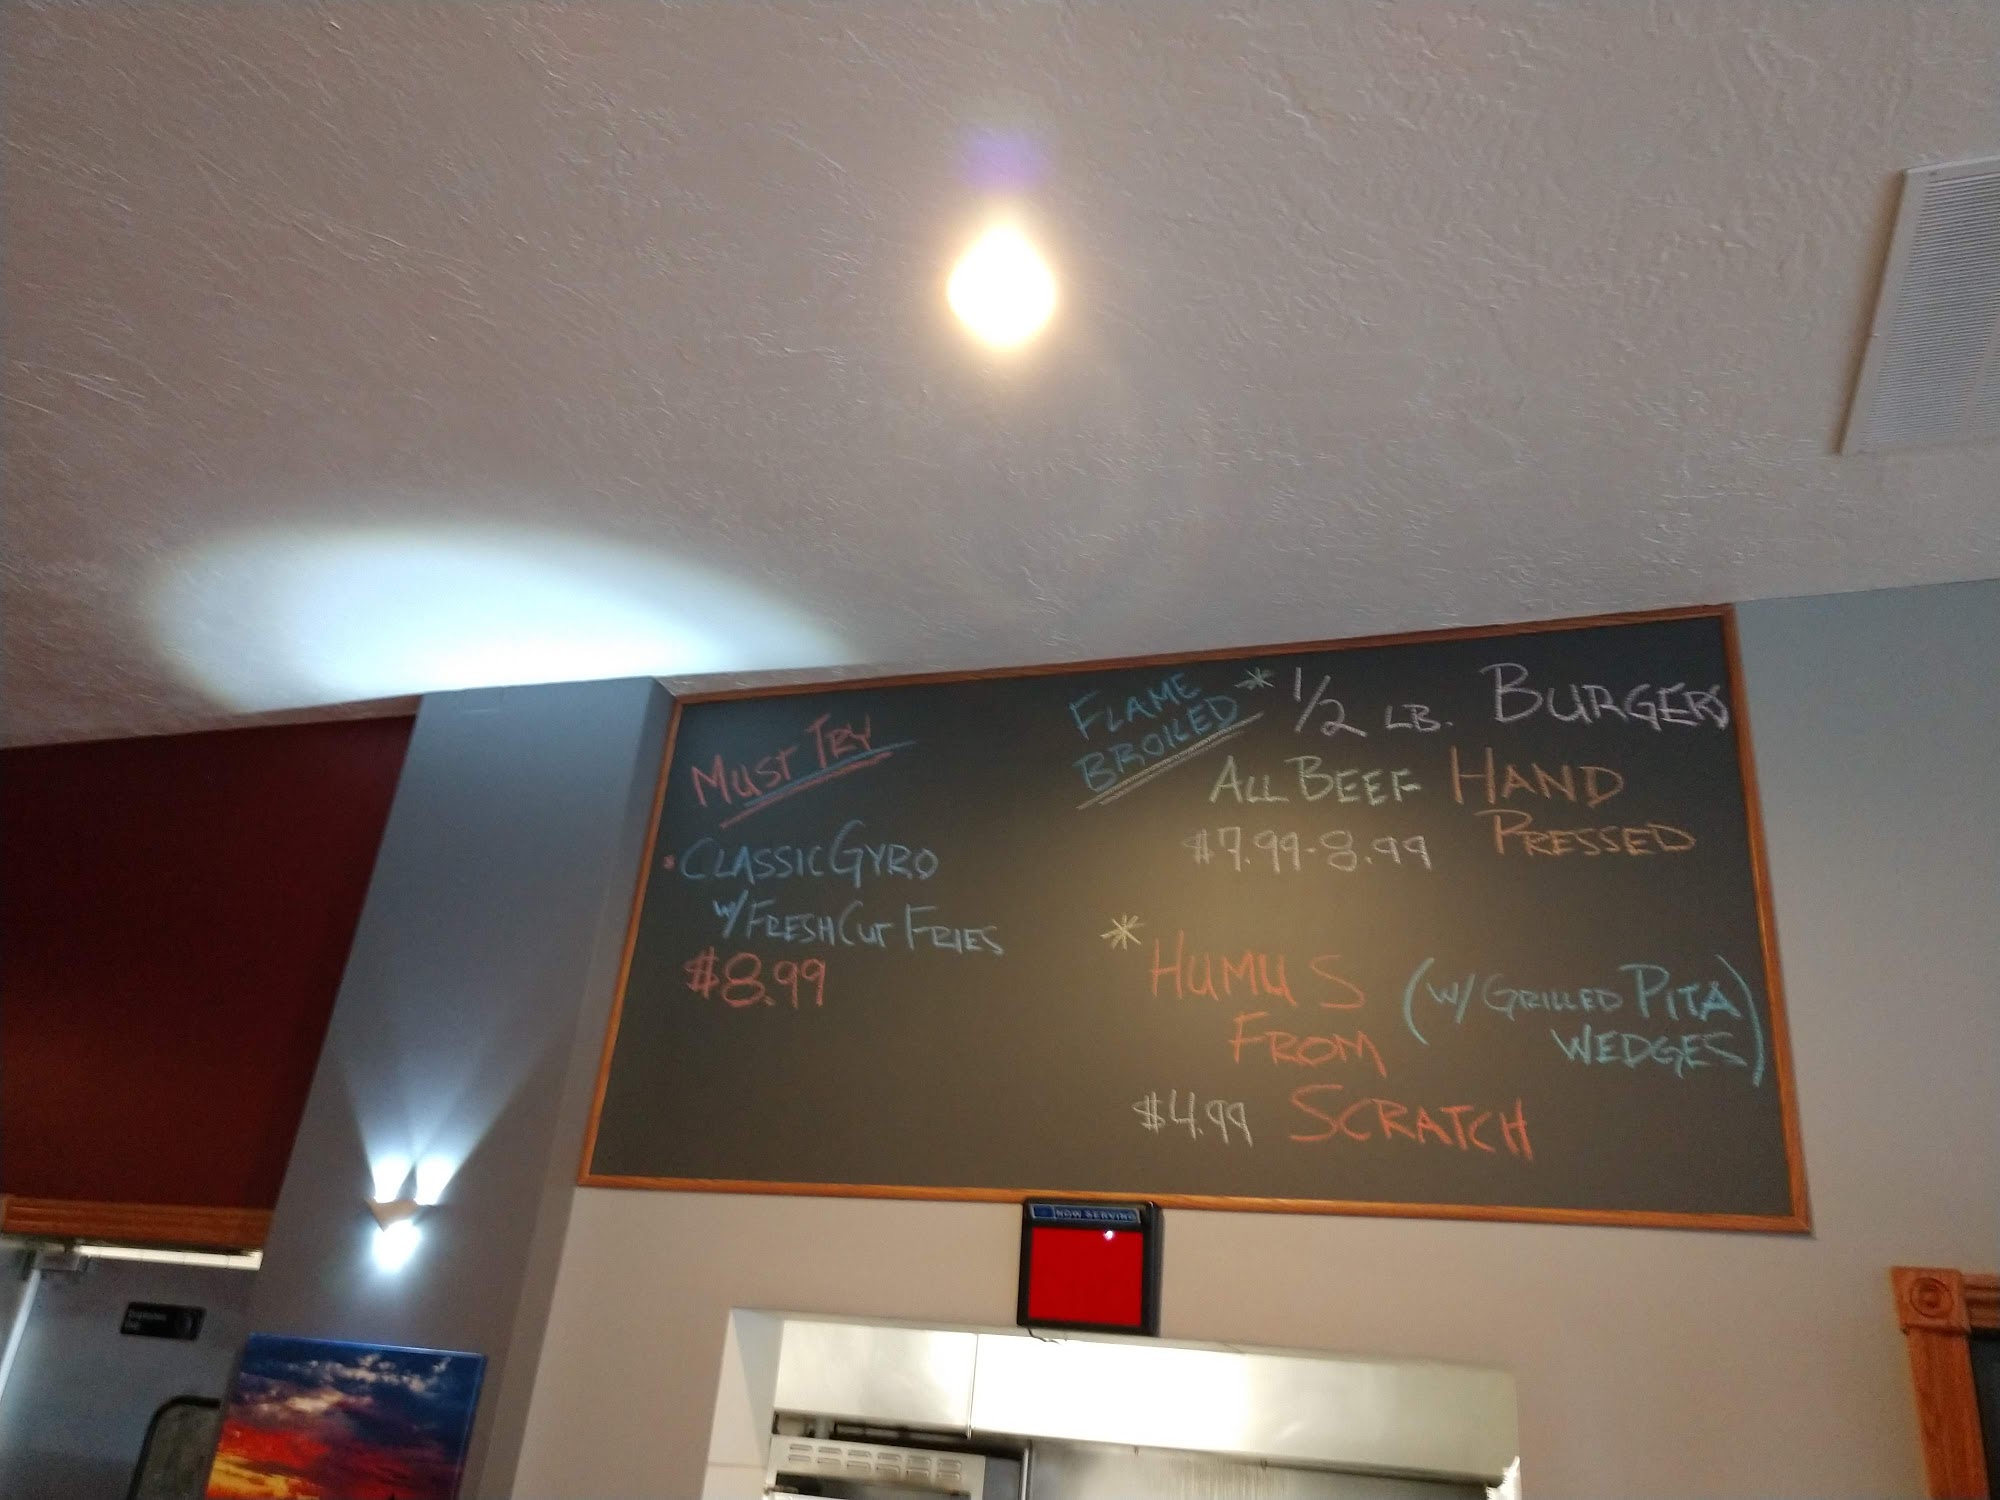 MUST TRY
* CLASSIC GYRO
W/ FRESH CUT FRIES
$8.99
FLAME
BROILED
* 1/2 LB. BURGERS
ALL BEEF HAND
PRESSED
$7.99-8.99
* HUMUS
FROM
SCRATCH
(W/ GRILLED PITA
WEDGES)
$4.99
NOW SERVING